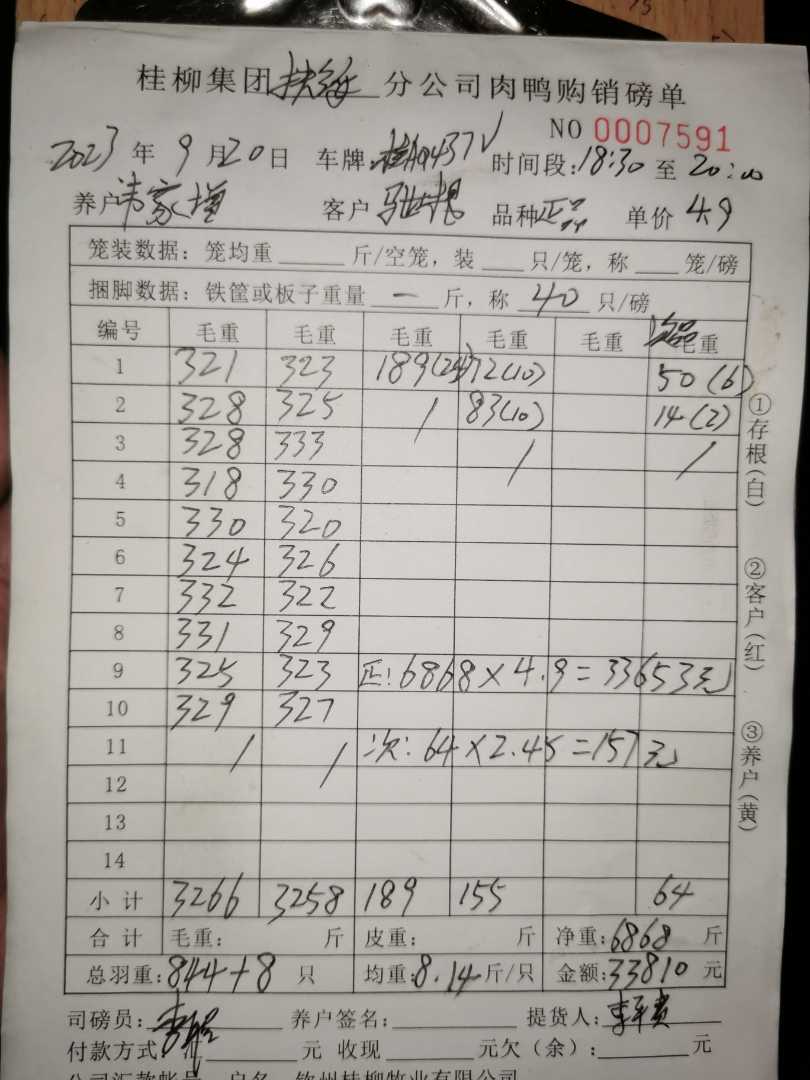 桂柳集团扶绥分公司肉鸭购销磅单
NO 0007591
2023年9月20日 车牌:桂A9437V 时间段:18:30至20:00
养户韦家增 客户 品种正品 单价 4.9
笼装数据：笼均重____斤/空笼，装___只/笼，称___笼/磅
捆脚数据：铁筐或板子重量 一 斤，称 40 只/磅
编号 毛重 毛重 毛重 毛重 毛重 次品毛重
1 321 323 189(24) 72(10) 50(6)
2 328 325 / 83(10) 14(2)
3 328 333 / /
4 318 330
5 330 320
6 324 326
7 332 322
8 331 329
9 325 323 正:6868×4.9=33653元
10 329 327
11 / / 次:64×2.45=157元
12
13
14
小计 3266 3258 189 155 64
合计 毛重: 斤 皮重: 斤 净重:6868 斤
总羽重:844+8 只 均重:8.14斤/只 金额:33810元
司磅员: 养户签名:________ 提货人:
付款方式 元 收现______元欠（余）:______元
公司汇款帐号 户名 钦州桂柳牧业有限公司
①存根(白)
②客户(红)
③养户(黄)